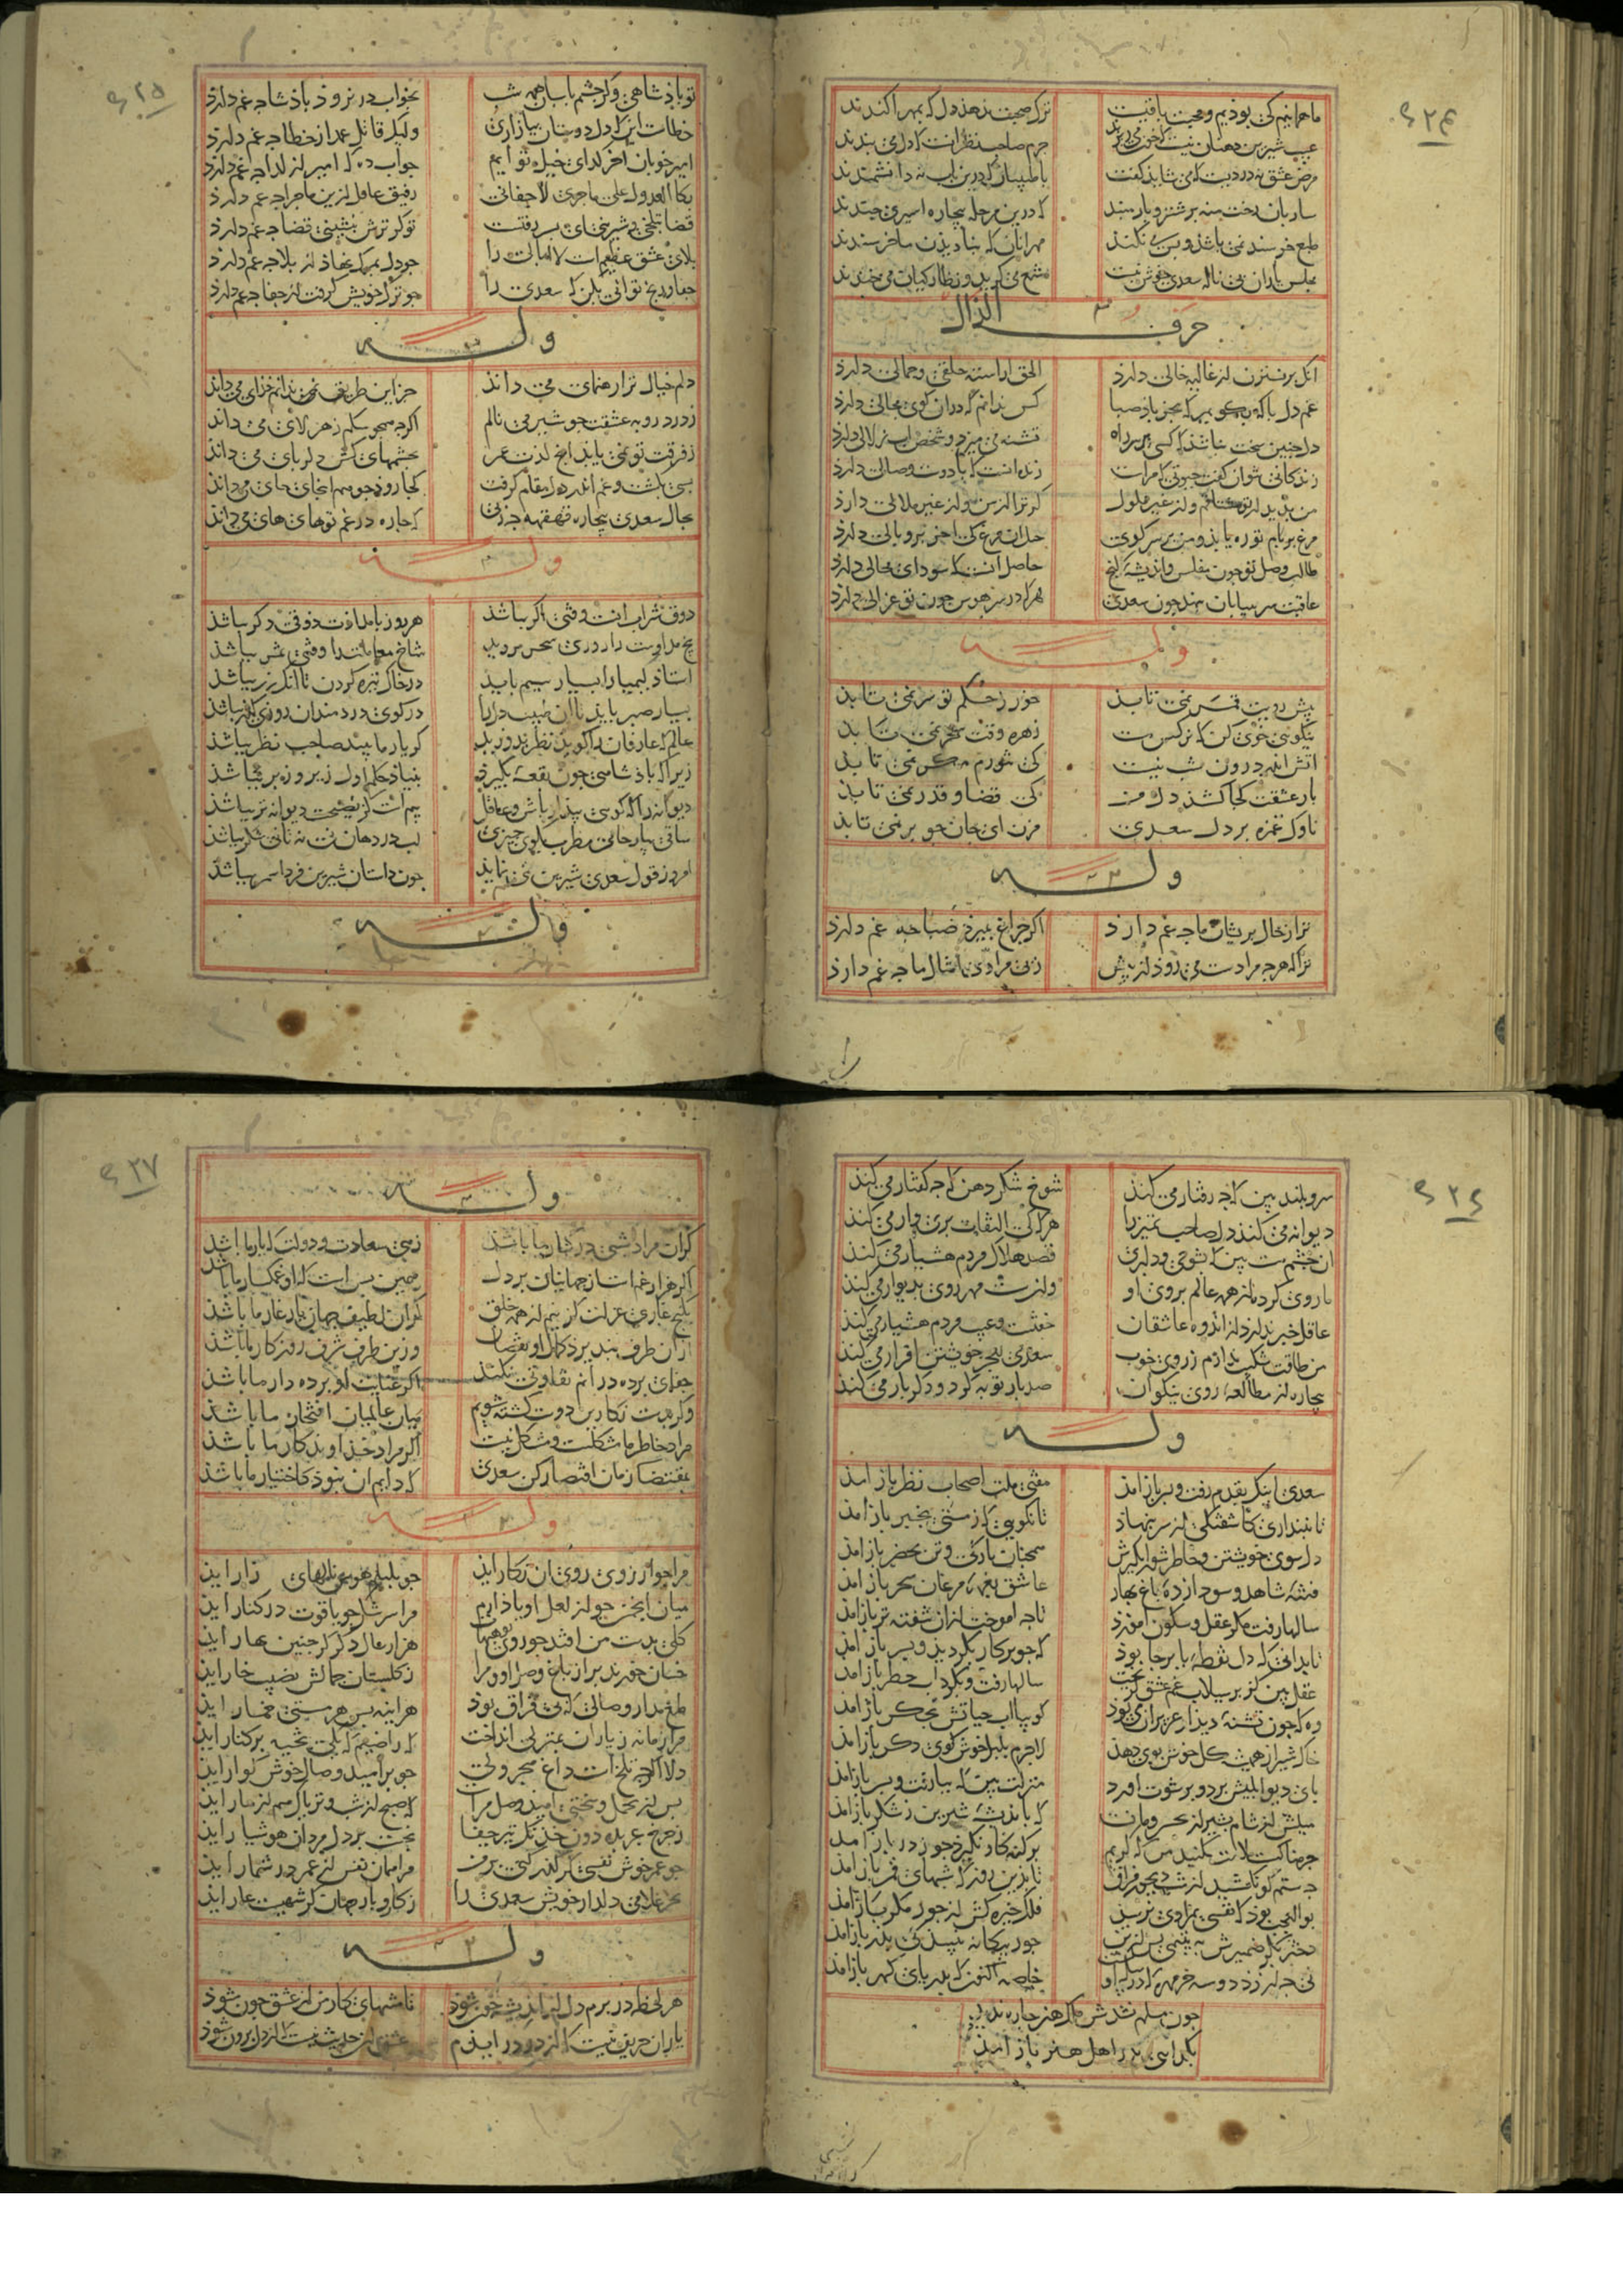 ۶۲۴
ما همانیم کی بوذیم و محبت باقیست ترک صحبت نذهذ دل که بمهر اکندند
عیب شیرین دهنان نیست که خون می ریزند جرم صاحب نظرانست که دل می بندند
مرض عشق نه دردیست که می شاید کفت با طبیبان که درین باب نه دانشمندند
ساربان رخت منه بر شتر و بار مبند که درین مرحله بیچاره اسیری چندند
طبع خرسند نمی باشذ و بس می نکند مهر انان که بنادیذن ما خرسندند
مجلس یاران بی ناله سعدی خوش نیست شمع می کرید و نظارکیان می خندند
حرف الذال
انک بر نسترن از غالیه خالی دارد الحق اراسته خلقی و جمالی دارد
غم دل با که بکویم که بجز باذ صبا کس ندانم که دران کوی مجالی دارد
دل جنین سخت نباشذ که کسی بر سر راه تشنه می میرد و شخص اب زلالی دارد
زندکانی نتوان کفت حیوتی که مراست زنده انست که با دوست وصالی دارد
من بدیدار تو مشتاقم و از غیر ملول کر ترا از من و از غیر ملالی دارد
مرغ بر بام تو ره یابذ و من بر سر کوی حبذا مرغ کی اخر پر و بالی دارد
طالب وصل تو جون مفلس و اندیشه کنج حاصل انست که سودای محالی دارد
عاقبت سر ببیابان بنهد جون سعدی هر که در سر هوس جون تو غزالی دارد
وله
پیش رویت قمر نمی تابذ خور ز حکم تو سر نمی تابذ
اتش اندر درون شب نیست کی تنورم مکر نمی تابذ
بار عشقت کجا کشذ دل من کی قضا و قدر نمی تابذ
ناوک غمزه بر دل سعدی مزن ای جان جو بر نمی تابذ
وله
ترا ز حال پریشان ما جه غم دارذ اکر جراغ بمیرذ صبا جه غم دارذ
ترا که هرجه مرادست می روذ از پیش ز بی مرادی امثال ما جه غم دارذ
۶۲۵
تو باذشاهی و کر چشم باسبان همه شب بخواب در نروذ باذشا جه غم دارذ
خطاست این که دل دوستان بیازاری ولیک قاتل عمد از خطا جه غم دارذ
امیر خوبان اخر کدای خیل توایم جواب ده که امیر از کدا جه غم دارذ
بکا العذول علی ماجری لاجفانی رفیق غافل ازین ماجرا جه غم دارذ
قضا بتلخی و شیرینی ای پسر رفتست تو کر ترش بنشینی قضا جه غم دارذ
بلای عشق عظیم است لاابالی را جو دل بمرک نهاذ از بلا جه غم دارذ
جفا و ریج توانی بکن که سعدی را جو ترک خویش کرفت از جفا جه غم دارذ
وله
دلم خیال ترا رهنمای می داند جز این طریق نمی ندانم خذای می داند
ز درد روبه عشقت جو شیر می نالم اکرجه همجو سکم زهر لای می داند
ز فرقت تو نمی یابذ ایج لذت عمر بجشمهای کش دلربای می داند
بسی بکشت و غم اندر دل مقام کرفت کجا روذ جو هم انجای جای می داند
بحال سعدی بیچاره قهقهه جه زنی که جاره در غم تو های های می داند
وله
ذوق شراب انست وقتی اکر بباشذ هر روز بامداذت ذوقی دکر بباشذ
بیخ مداومت را روزی شجر بروید شاخ مواظبت را وقتی ثمر بباشذ
استاذ کیمیا را بسیار سیم بایذ در خاک تیره کردن تا انک زر بباشذ
بسیار صبر بایذ تا ان طبیب دل را در کوی دردمندان روزی کذر بباشذ
عالم که عارفان را کوید نظر بدوزید کر یار ما ببیند صاحب نظر بباشذ
زیرا که باذشاهی جون بقعه بکیرذ بنیاذ حکم اول زیر و زبر بباشذ
دیوانه را که کویی هشیار باش و عاقل بیم است کز نصیحت دیوانه تر بباشذ
ساقی بیار جامی مطرب بکوی جیزی لب بر دهان نی نه تا نی شکر بباشذ
امروز قول سعدی شیرین نمی نماید جون داستان شیرین فردا سمر بباشذ
وله
۶۲۶
سرو بلند بین که جه رفتار می کنذ شوخ شکر دهن که جه کفتار می کنذ
دیوانه می کنذ دل صاحب تمیز را هر که کی التفات پری وار می کنذ
ان چشم مست بین که بشوخی و دلبری قصد هلاک مردم هشیار می کنذ
ما روی کرده از همه عالم بروی او وان سست مهر روی بدیوار می کنذ
عاقل خبر ندارد از اندوه عاشقان خفتست و عیب مردم هشیار می کنذ
من طاقت شکیب ندارم ز روی خوب سعدی بعجز خویشتن اقرار می کنذ
بیچاره از مطالعه روی نیکوان صد بار توبه کرد و دکر بار می کنذ
وله
سعدی اینک بقدم رفت و بسر باز امذ مفتی ملت اصحاب نظر باز امذ
تا نبنداری کاشفتکی از سر بنهاذ تا نکویی که ز مستی بخبر باز امذ
دل سوی خویشتن و خاطر شورانکیزش همجنان یاوکی و تن بحضر باز امذ
فتنه شاهد و سوداز ده باغ بهار عاشق نغمه مرغان سحر باز امذ
سالها رفت مکر عقل و سکون اموزذ تا جه اموخت کزان شفته تر باز امذ
تا بدانی که دل نقطه بابرجا بوذ که جو برکار بکردیذ و بسر باز امذ
عقل بین کز بر سیلاب غم عشق کریخت سالها رفت و بکرداب خطر باز امذ
وه که جون تشنه دیذار عزیزان می بوذ کویا اب حیاتش بجکر باز امذ
خاک شیراز همیشه کل خوش بوی دهذ لاجرم بلبل خوش کوی دکر باز امذ
بای دیوانکیش برد و سر شوق اورد منزلت بین که ببا رفت و بسر باز امذ
میلش از شام بشیراز بخسرو مانست که باندیشه شیرین ز شکر باز امذ
جرمناکست ملامت مکنیدش که کریم بر کنه کار نکیرذ جو ز در باز امذ
جه ستم کو نکشید از شب دیجور فراق تا بذین روز که شبهای قمر باز امذ
بوالعجب بوذ که نفسی بمراذی برسیذ فلک خیره کش از جور مکر باز امذ
دختر بکر ضمیرش به یتیمی بس ازین جور بیکانه نبیند کی بذر باز امذ
نی جه ارزذ دو سه خرمهره که در بیله اوست خاصه اکنون که بدریای کهر باز امذ
جون مسلم نشدش ملک هنر جاره ندیذ
بکدایی بدر اهل هنر باز امذ
۶۲۷
وله
کر ان مراذ شبی در کنار ما باشذ زهی سعادت و دولت که یار ما باشذ
اکر هزار غم است از جهانیان بر دل همین بس است که او غمکسار ما باشذ
بکنج غاری عزلت کزینم از همه خلق کر ان لطیف جهان یار غار ما باشذ
ازان طرف نبذیرذ کمال او نقصان وزین طرف شرف روزکار ما باشذ
جفای برده درانم تفاوتی نکنذ اکر عنایت او برده دار ما باشذ
وکر بدست نکارین دوست کشته شویم میان عالمیان افتخار ما باشذ
مراد خاطر ما مشکلست و مشکل نیست اکر مراد خذاوندکار ما باشذ
بمقتضا زمان اقتصار کن سعدی که دایم ان نبوذ کاختیار ما باشذ
وله
مرا جو ارزوی روی ان نکار ایذ جو بلبلم هوس نالهای زار ایذ
میان انجمن جو از لعل او یاذ ارم مرا سرشک جو یاقوت در کنار ایذ
هزار عاذ دکر کر جنین بهار ایذ
طمع مدار وصالی که بی فراق بوذ هر اینه بس هر مستیی خمار ایذ
مرا زمانه ز یاران بمنزلی انداخت که راضیم که بنسیمی کزان دیار ایذ
دلا اکرچه تلخ است داغ مهجوری جو بر امید وصالست خوشکوار ایذ
بس از تحمل و سختی امید وصل مراست که صبح از شب و تریاک هم ز مار ایذ
ز چرخ عربده جو بس خدنک تیر جفا بجست و بر دل مردان هوشیار ایذ
جو عمر خوش نفسی کر کذر کنی بر من مرا همان نفس از عمر در شمار ایذ
بجز غلامی دلدار خویش سعدی را ز کار و بار جهان کر شهیست عار ایذ
وله
هر لحظه در برم دل از اندیشه خون شوذ تا منتهای کار من از عشق جون شوذ